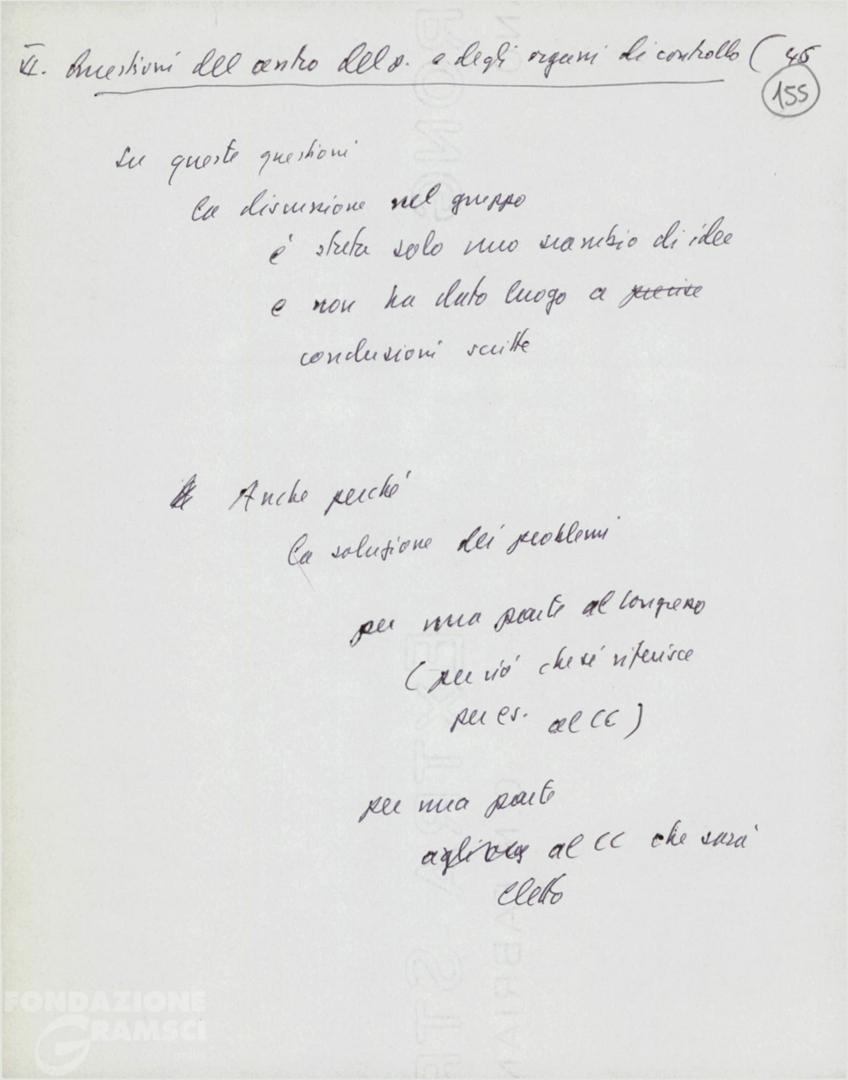 VI. Questioni del centro del p. e degli organi di controllo ( 45
155
Su queste questioni
la discussione nel gruppo
è stata solo uno scambio di idee
e non ha dato luogo a precise
conclusioni scritte
Anche perché
la soluzione dei problemi
per una parte al Congresso
( per ciò che si riferisce
per es. al CC )
per una parte
al CC che sarà
eletto
FONDAZIONE
GRAMSCI